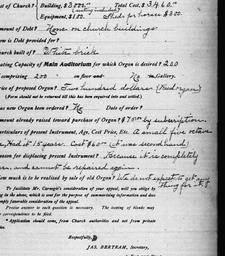 of Church? { Building, $3000.00 Total Cost, $3460.00
Equipment, $150. Sheds for horses $300.
mount of Debt? None on church buildings
ow is Debt provided for?
urch built of? White brick
ating Capacity of Main Auditorium for which Organ is desired? 200
comprising 200 on floor and No in Gallery.
ice of proposed Organ? Two hundred dollars (Reed organ)
(Form should not be returned till this has been enquired into and settled.)
as new Organ been ordered? No Date of order?
mount already raised toward purchase of Organ? $75.00 by subscription.
articulars of present Instrument, Age, Cost Price, Etc. A small five octave
Had it 15 years. Cost $60.00 (it was secondhand)
eason for displacing present Instrument? Because it is completely
worn and cannot be repaired again.
ow much is to be realised by sale of old Organ? We do not expect to get any
thing for it.
To facilitate Mr. Carnegie's consideration of your appeal, will you oblige by
ng in the above, which is used for the purpose of summarising information and does
imply favorable consideration of the appeal.
Precise answer to each question is necessary. The issuing of blanks may
correspondence to be filed.
Application should come from Church authorities and not from private
Respectfully,
JAS. BERTRAM, Secretary,